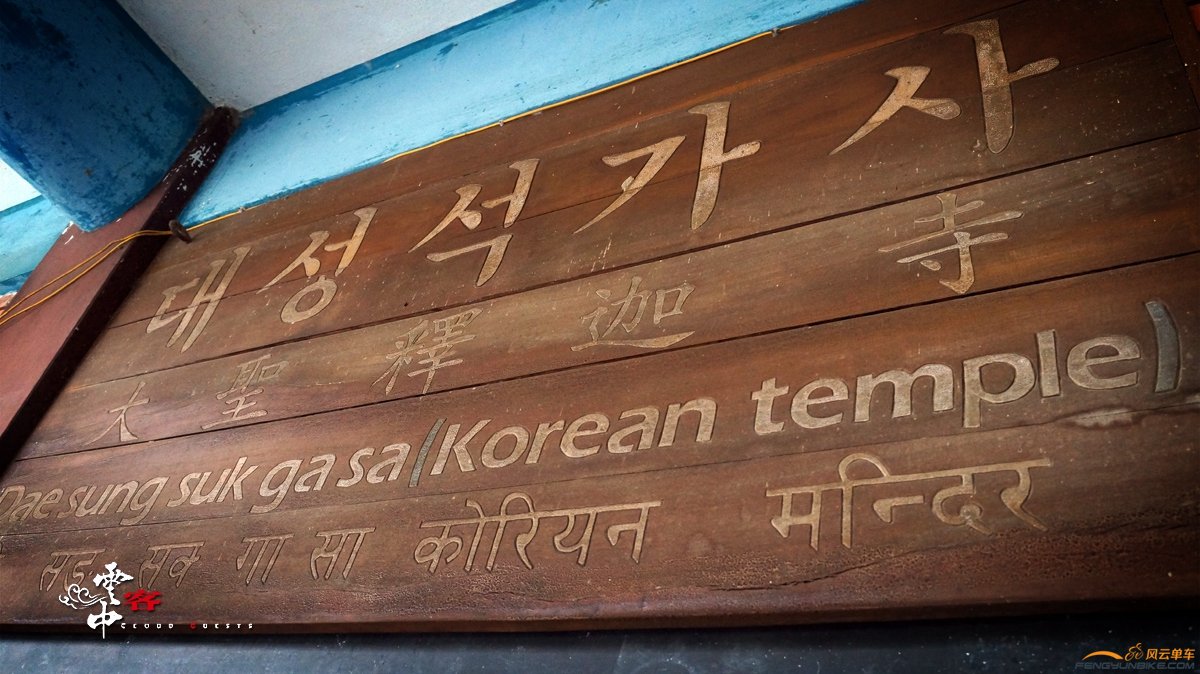 대성석가사
大聖釋迦寺
Dae sung suk ga sa (Korean temple)
सङ सक गा सा कोरियन मन्दिर
雲中客
CLOUD GUESTS
风云单车
FENGYUNBIKE.COM